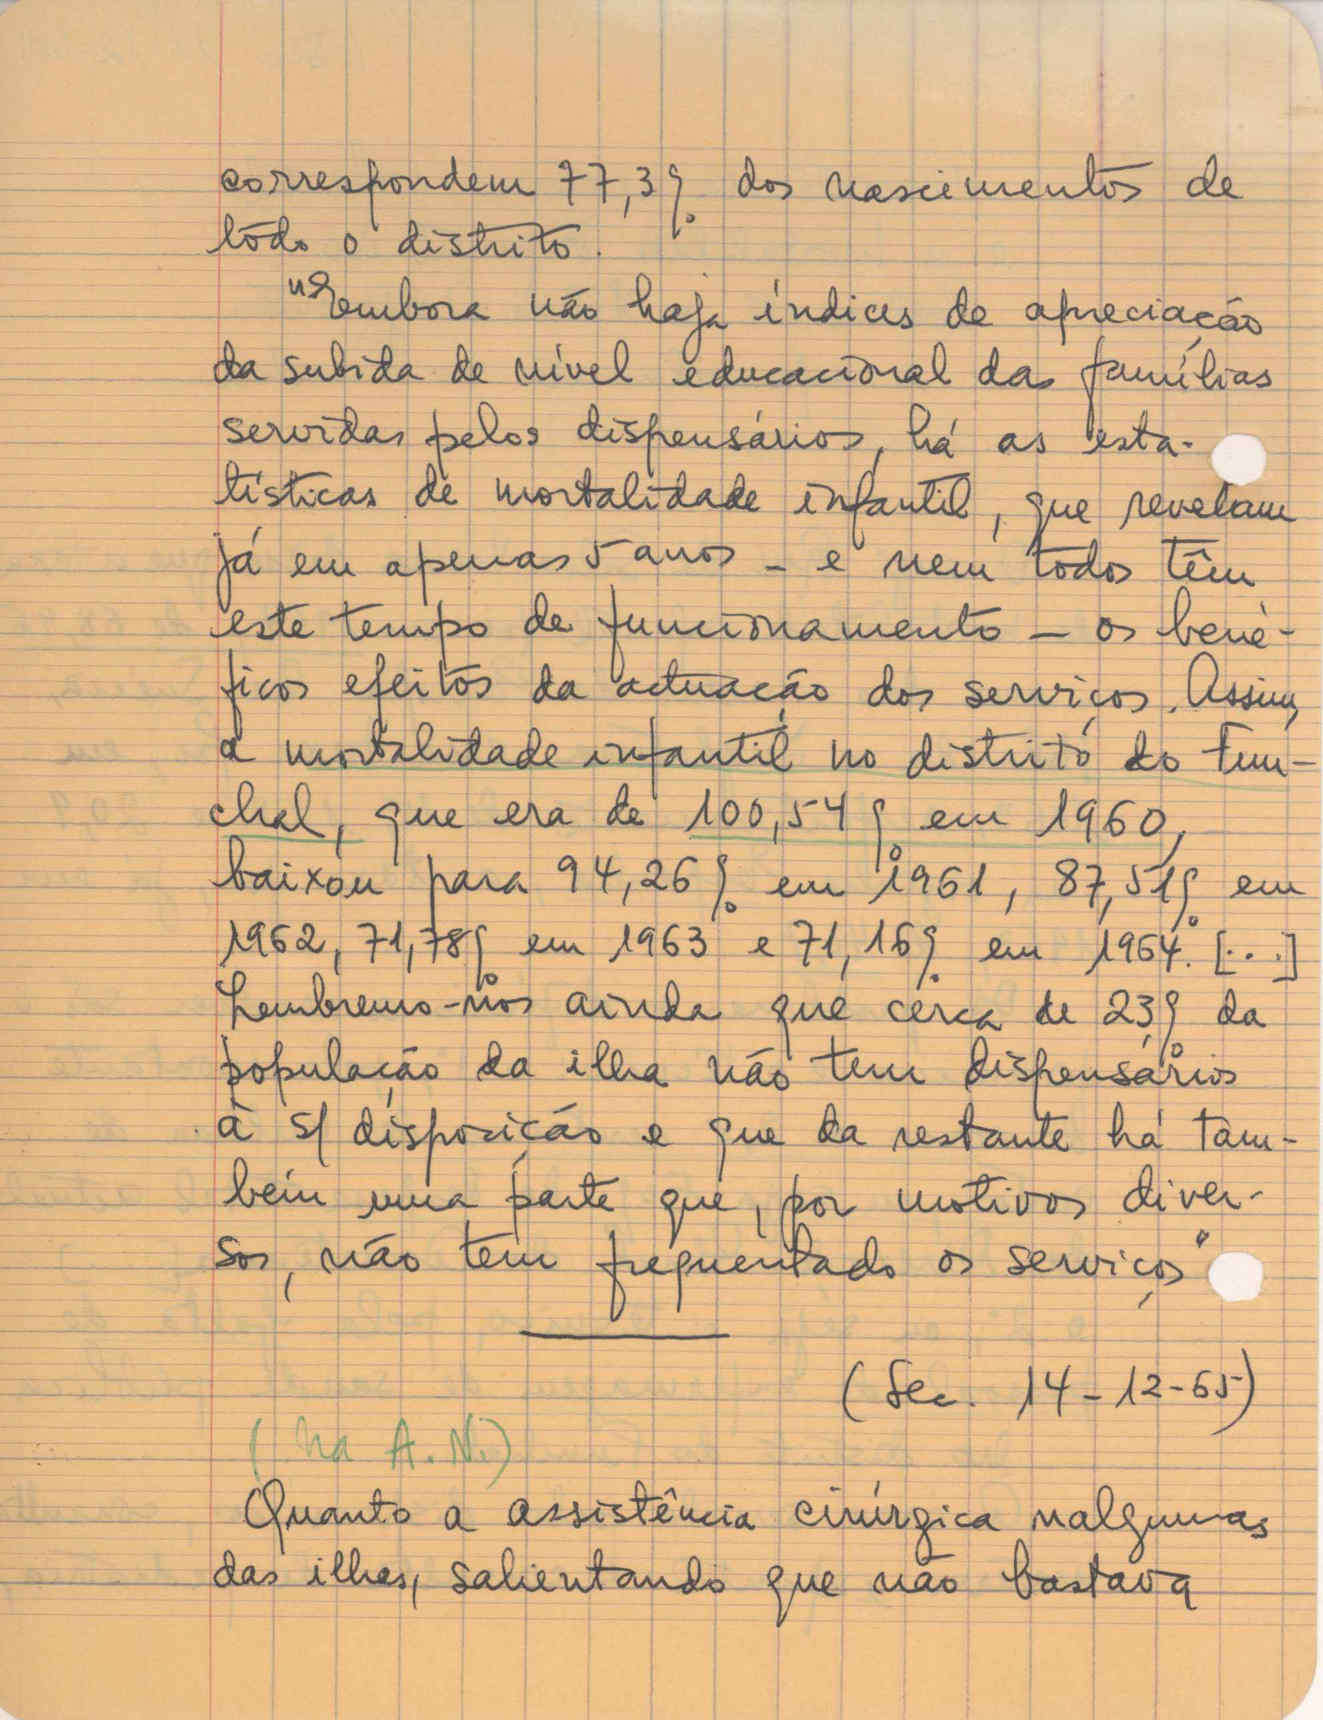 correspondem 77,3% dos nascimentos de
todo o distrito.
"Embora não haja índices de apreciação
da subida de nível educacional das famílias
servidas pelos dispensários, há as esta-
tísticas de mortalidade infantil, que revelam
já em apenas 5 anos - e nem todos têm
este tempo de funcionamento - os bené-
ficos efeitos da actuação dos serviços. Assim,
a mortalidade infantil no distrito do Fun-
chal, que era de 100,54% em 1960,
baixou para 94,26% em 1961, 87,51% em
1962, 71,78% em 1963 e 71,16% em 1964. [...]
Lembremo-nos ainda que cerca de 23% da
população da ilha não tem dispensários
à s/ disposição e que da restante há tam-
bém uma parte que, por motivos diver-
sos, não tem frequentado os serviços"
(Sec. 14-12-65)
(Na A.N.)
Quanto a assistência cirúrgica nalgumas
das ilhas, salientando que não bastava